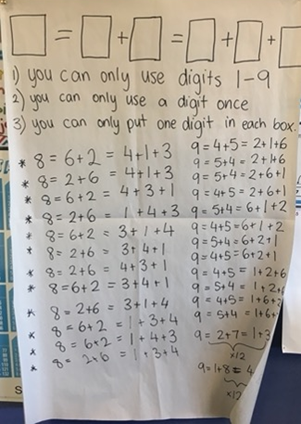 □ = □ + □ = □ + □ + □
1) you can only use digits 1-9
2) you can only use a digit once
3) you can only put one digit in each box.
* 8 = 6+2 = 4+1+3
* 8 = 2+6 = 4+1+3
* 8 = 6+2 = 4+3+1
* 8 = 2+6 = 1+4+3
* 8 = 6+2 = 3+1+4
* 8 = 2+6 = 3+4+1
* 8 = 2+6 = 4+3+1
* 8 = 6+2 = 3+4+1
* 8 = 2+6 = 3+1+4
* 8 = 6+2 = 1+3+4
* 8 = 6+2 = 1+4+3
* 8 = 2+6 = 1+3+4
9 = 4+5 = 2+1+6
9 = 5+4 = 2+1+6
9 = 5+4 = 2+6+1
9 = 4+5 = 2+6+1
9 = 5+4 = 6+1+2
9 = 4+5 = 6+1+2
9 = 5+4 = 6+2+1
9 = 4+5 = 6+2+1
9 = 4+5 = 1+2+6
9 = 5+4 = 1+2+
9 = 4+5 = 1+6+
9 = 5+4 = 1+6+
9 = 2+7 = 1+3
x12
9 = 1+8 = 4
x12